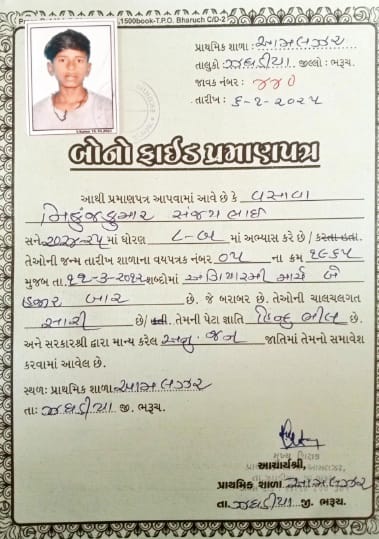 1500book-T.P.O. Bharuch C/D-2
પ્રાથમિક શાળા : આમલઝર
તાલુકો ઝઘડીયા જીલ્લો : ભરૂચ.
જાવક નંબર : ૪૪૦
તારીખ : ૬-૧-૨૦૨૫
બોનોફાઈડ પ્રમાણપત્ર
આથી પ્રમાણપત્ર આપવામાં આવે છે કે વસાવા
મિહુંજકુમાર સંજયભાઈ
સને ૨૦૨૪-૨૫ માં ધોરણ ૮-બ માં અભ્યાસ કરે છે / કરતા હતા.
તેઓની જન્મ તારીખ શાળાના વયપત્રક નંબર ૦૫ ના ક્રમ ૧૯૬૫
મુજબ તા. ૧૧-૩-૨૦૧૨ શબ્દોમાં અગિયારમી માર્ચ બે
હજાર બાર છે. જે બરાબર છે. તેઓની ચાલચલગત
સારી છે/હતી. તેમની પેટા જ્ઞાતિ હિન્દુ ભીલ છે.
અને સરકારશ્રી દ્વારા માન્ય કરેલ અનુ. જન જાતિમાં તેમનો સમાવેશ
કરવામાં આવેલ છે.
સ્થળ: પ્રાથમિક શાળા આમલઝર
તા: ઝઘડીયા જી. ભરૂચ.
મુખ્ય શિક્ષક
આચાર્યશ્રી,
પ્રાથમિક શાળા આમલઝર
તા. ઝઘડીયા જી. ભરૂચ.